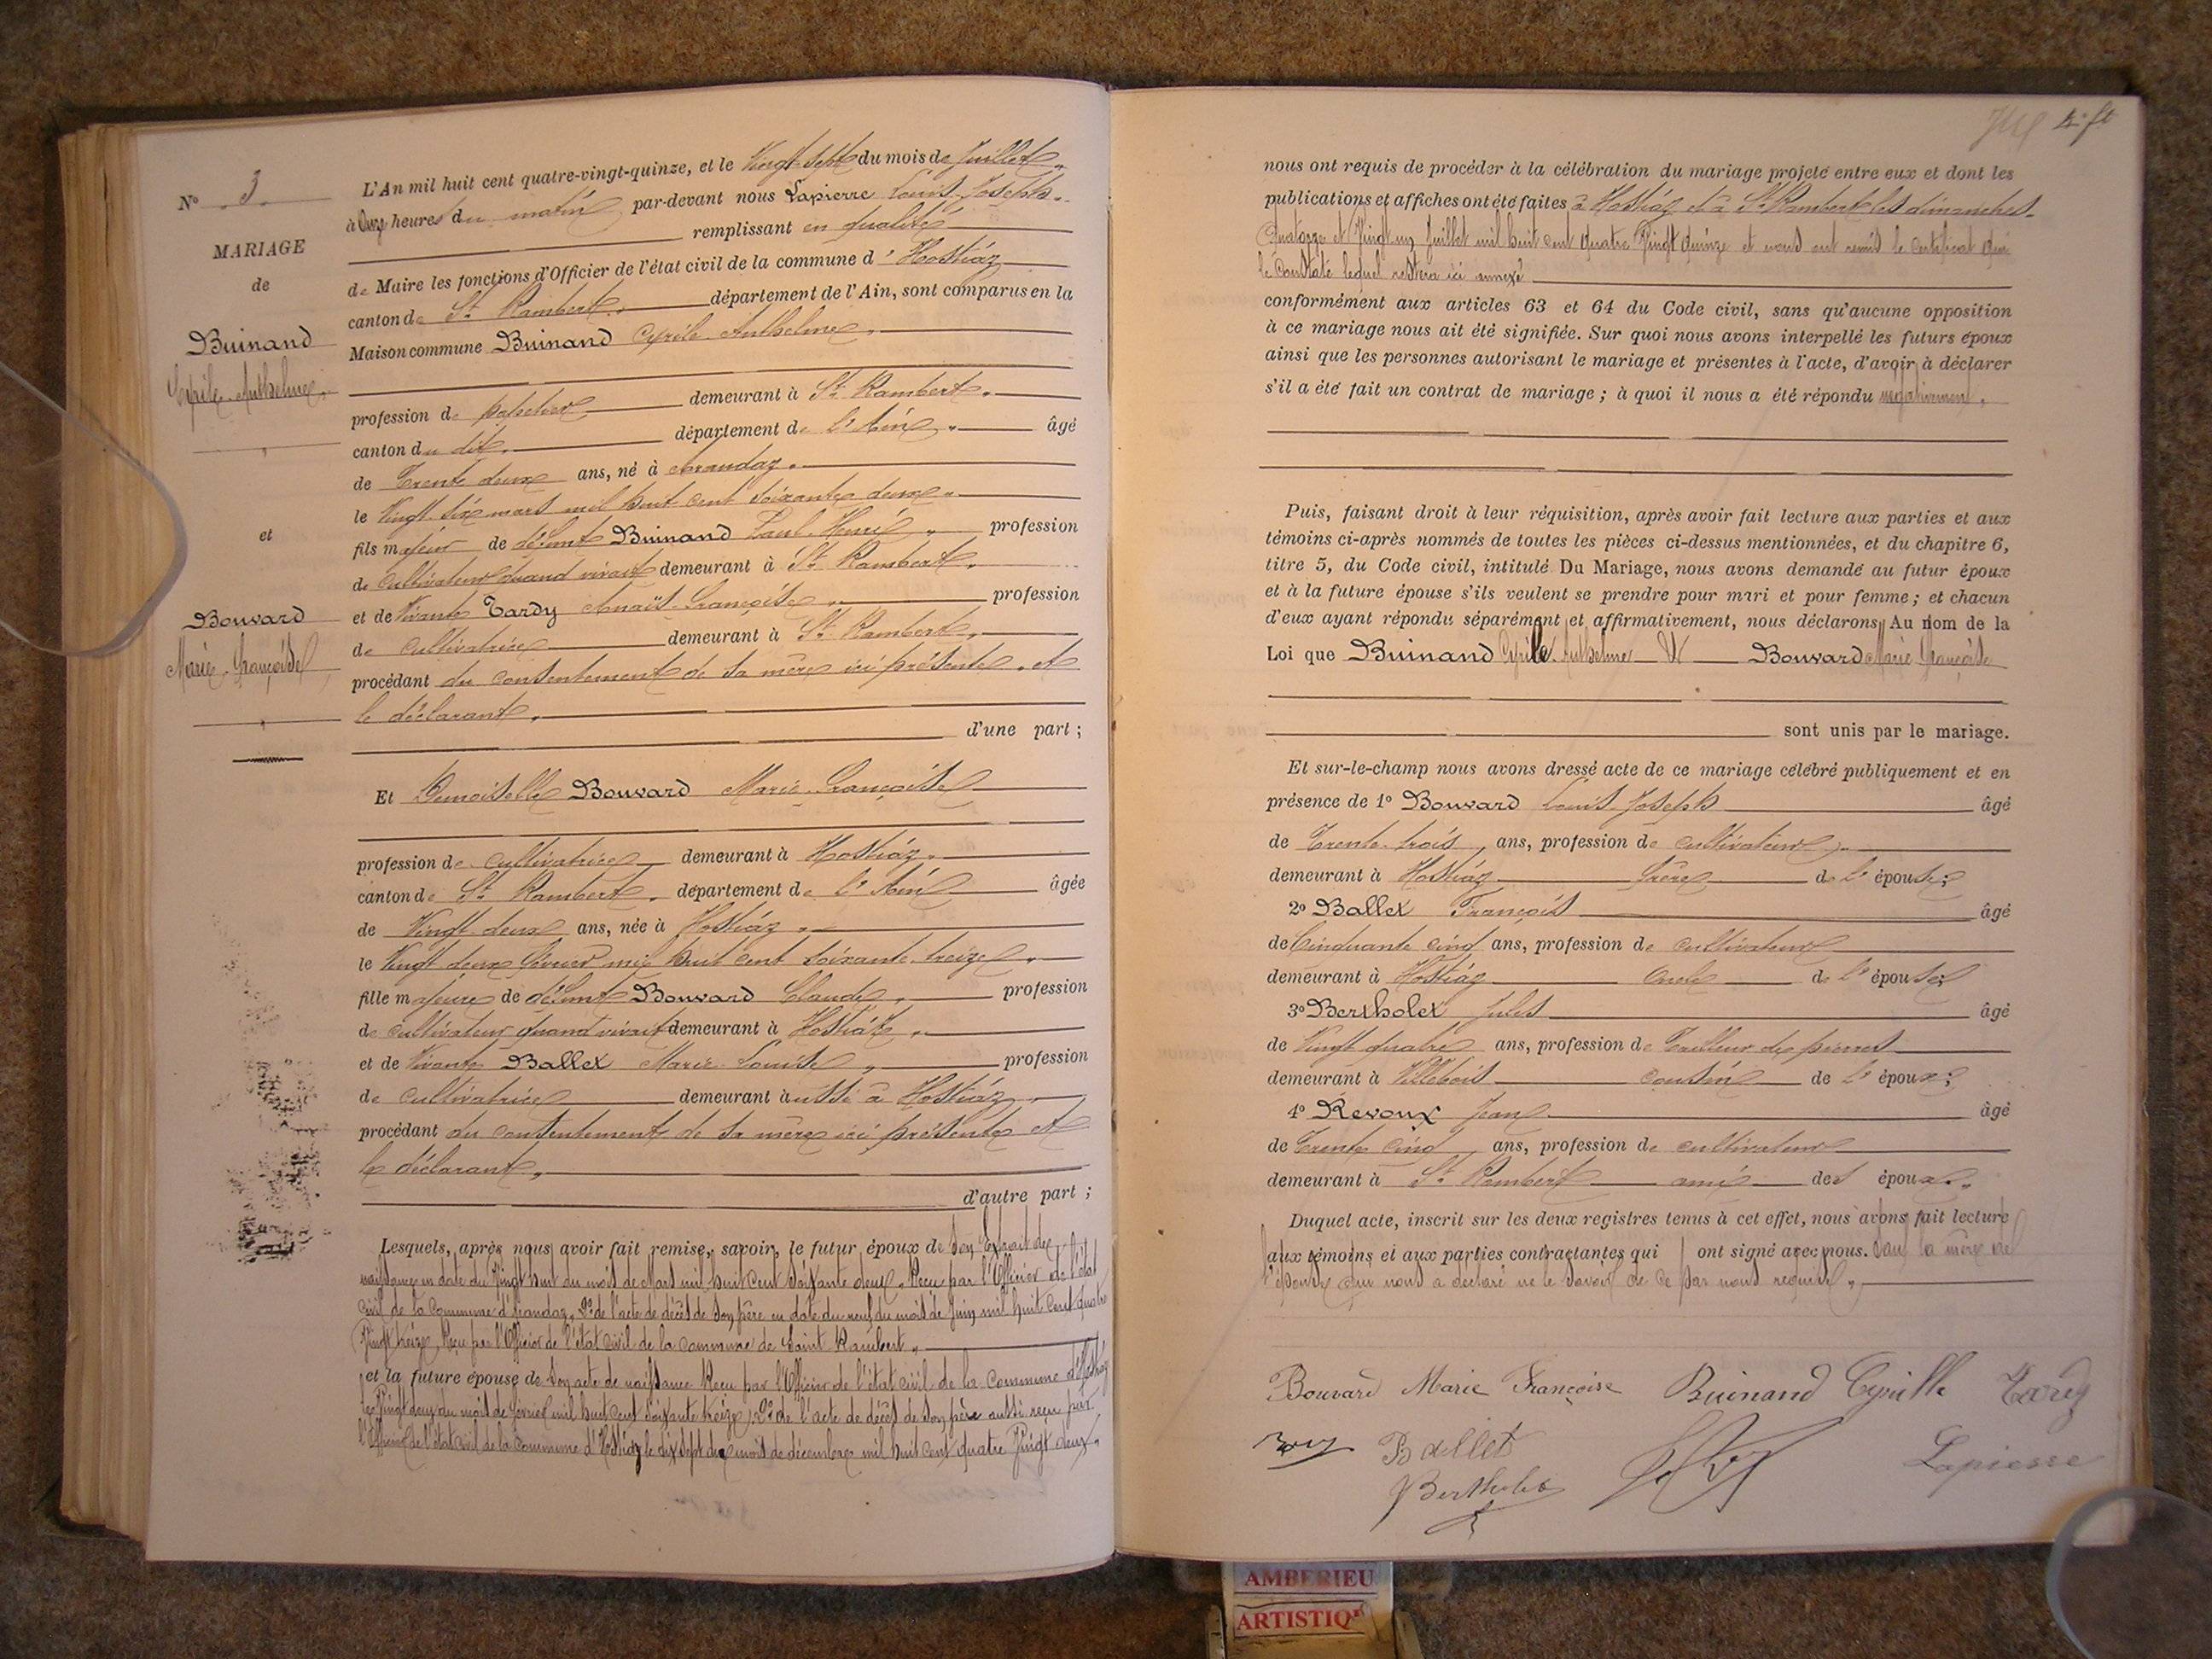 N° 3.
MARIAGE
de
Buinand
Cyrile Anthelme.
et
Bouvard
Marie Françoise
L'An mil huit cent quatre-vingt-quinze, et le Vingt sept du mois de Juillet
à onze heures du matin par-devant nous Lapierre Louis Joseph
remplissant en qualité
de Maire les fonctions d'Officier de l'état civil de la commune d'Hostiáz
canton de St Rambert département de l'Ain, sont comparus en la
Maison commune Buinand Cyrile Anthelme
profession de demeurant à St Rambert
canton du dit département de l'Ain âgé
de Trente deux ans, né à Arandaz
le Vingt six mars mil huit cent soixante deux
fils majeur de défunt Buinand Paul Henri profession
de Cultivateur quand vivait demeurant à St Rambert
et de Vivante Tardy Anaïs Françoise profession
de cultivatrice demeurant à St Rambert
procédant du consentement de sa mère ici présente et
le déclarant
d'une part ;
Et Demoiselle Bouvard Marie Françoise
profession de cultivatrice demeurant à Hostiáz
canton de St Rambert département de l'Ain âgée
de Vingt deux ans, née à Hostiáz
le Vingt deux février mil huit cent soixante treize
fille majeure de défunt Bouvard Claude profession
de cultivateur quand vivait demeurant à Hostiáz
et de Vivante Ballet Marie Louise profession
de cultivatrice demeurant aussi à Hostiáz
procédant du consentement de sa mère ici présente et
le déclarant
d'autre part ;
Lesquels, après nous avoir fait remise, savoir, le futur époux de son Extrait de
naissance en date du Vingt huit du mois de Mars mil huit cent soixante deux. Reçu par l'Officier de l'état
civil de la commune d'Arandaz, 2° de l'acte de décès de son père en date du neuf du mois de Juin mil huit cent quatre
Vingt treize, Reçu par l'Officier de l'état civil de la commune de Saint Rambert
et la future épouse de son acte de naissance Reçu par l'Officier de l'état civil de la commune d'Hostiáz
le Vingt deux du mois de février mil huit cent soixante treize, 2° de l'acte de décès de son père aussi reçu par
l'Officier de l'état civil de la commune d'Hostiáz le dix sept du mois de décembre mil huit cent quatre Vingt deux.
nous ont requis de procéder à la célébration du mariage projeté entre eux et dont les
publications et affiches ont été faites à Hostiáz et à St Rambert les dimanches
Quatorze et Vingt un Juillet mil huit cent quatre Vingt quinze et nous ont remis le certificat qui
le constate lequel restera ici annexé
conformément aux articles 63 et 64 du Code civil, sans qu'aucune opposition
à ce mariage nous ait été signifiée. Sur quoi nous avons interpellé les futurs époux
ainsi que les personnes autorisant le mariage et présentes à l'acte, d'avoir à déclarer
s'il a été fait un contrat de mariage ; à quoi il nous a été répondu négativement.
Puis, faisant droit à leur réquisition, après avoir fait lecture aux parties et aux
témoins ci-après nommés de toutes les pièces ci-dessus mentionnées, et du chapitre 6,
titre 5, du Code civil, intitulé Du Mariage, nous avons demandé au futur époux
et à la future épouse s'ils veulent se prendre pour mari et pour femme ; et chacun
d'eux ayant répondu séparément et affirmativement, nous déclarons Au nom de la
Loi que Buinand Cyrile Anthelme Et Bouvard Marie Françoise
sont unis par le mariage.
Et sur-le-champ nous avons dressé acte de ce mariage célébré publiquement et en
présence de 1° Bouvard Louis Joseph âgé
de Trente trois ans, profession de cultivateur
demeurant à Hostiáz frère de l'épouse ;
2° Ballet François âgé
de Cinquante cinq ans, profession de cultivateur
demeurant à Hostiáz oncle de l'épouse ;
3° Bertholet Jules âgé
de Vingt quatre ans, profession de Tailleur de pierres
demeurant à Villebois cousin de l'époux ;
4° Revoux Jean âgé
de Trente cinq ans, profession de cultivateur
demeurant à St Rambert ami des époux.
Duquel acte, inscrit sur les deux registres tenus à cet effet, nous avons fait lecture
aux témoins et aux parties contractantes qui ont signé avec nous. Sauf la mère de
l'épouse qui nous a déclaré ne le savoir de ce par nous requise
Bouvard Marie Françoise Buinand Cyrille Tardy
Ballet
Bertholet
Lapierre
AMBERIEU
ARTISTIQ